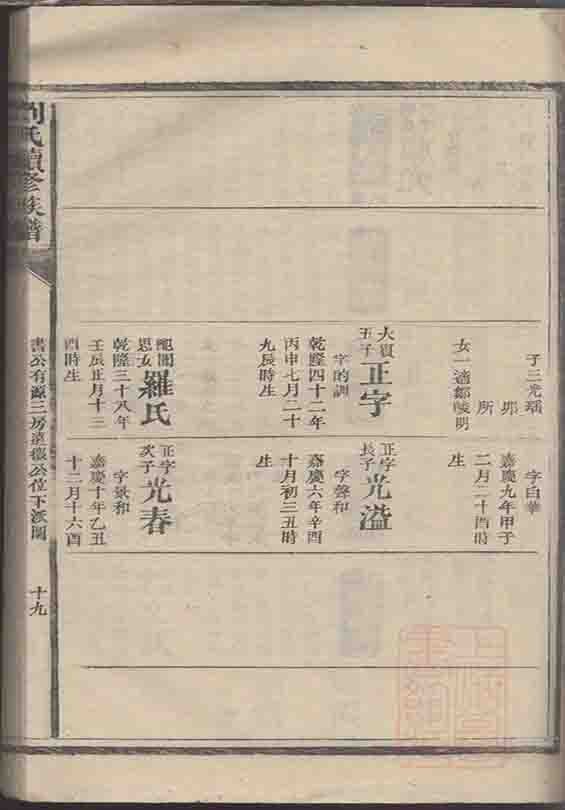 子三光瑀
郷
所
女一適鄒峻明
字白華
嘉慶九年甲子
二月二十酉時
生
大賓
五子
正字
字的訓
乾隆四十二年
丙申七月二十
九辰時生
正字
長子
光溢
字聲和
嘉慶六年辛酉
十月初三丑時
生
配閣
思女
羅氏
乾隆三十八年
壬辰正月十三
酉時生
正字
次子
光春
字景和
嘉慶十年乙丑
十二月十六酉
劉氏續修族譜
書公有源三房
公位下派圖
十九